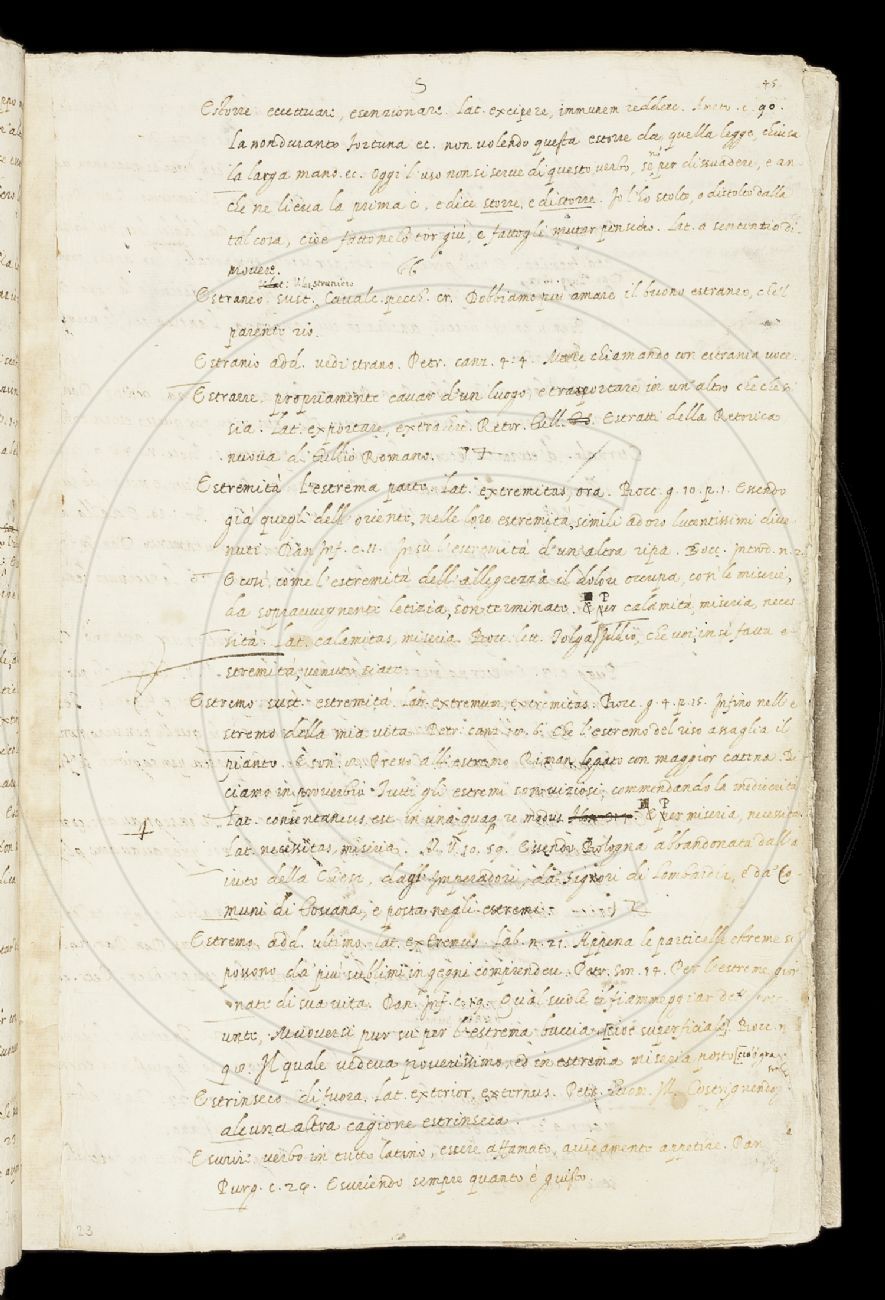 S
45
Estorre eccettuare, esenzionare. Lat. excipere, immunem reddere. Ameto. c. 90.
La non durante fortuna ec. non volendo questa estorre da quella legge, chiusa
la larga mano. ec. Oggi l'uso non si serve di questo verbo, se nō per dissuadere, e an-
che ne lieva la prima e, e dice storre, e distorre. Io l'ho stolto, o distolto dalla
tal cosa, cioè fattonelo tor giù, e fattogli mutar pensiero. Lat. a sententia di-
movere.
Estraneo sust. straniero Cavalc. Dobbiamo più amare il buono estraneo, che 'l
parente rio.
Estranio add. vedi strano. Petr. canz. 4: 4. Mercè chiamando con estrania voce.
Estrarre propriamente cavar d'un luogo, e trasportare in un altro che che si
sia. Lat. exportare, extrahere. Retor. Tull. Estratti della Retorica
nuova di Tullio Romano.
Estremità l'estrema parte. Lat. extremitas, ora. Bocc. g. 10. p. 1. Essendo
già quegli dell'oriente, nelle loro estremità, simili ad oro lucentissimi dive-
nuti. Dan. Inf. c. 11. In su l'estremità d'un'alta ripa. Bocc. Introd. n. 2.
E così come l'estremità dell'allegrezza il dolore occupa, così le miserie,
da sopravvegnente letizia, son terminate. & P per calamità, miseria, neces
sità. Lat. calamitas, miseria. Bocc. lett. che voi, in sì fatta e-
stremità, venuto siate.
Estremo sust. estremità. Lat. extremum, extremitas. Bocc. g. 4. p. 15. Infino nello e
stremo della mia vita. Petr. canz. Che l'estremo del riso assaglia il
pianto. E son. Preso all'estremo Riman legato con maggior catena. Di
ciamo in proverbio Tutti gli estremi son viziosi, commendando la mediocrità
Lat. consentaneus est in una quaq. re modus. & P per miseria, necessità
Lat. necessitas, miseria. M. V. 10. 59. Essendo Bologna abbandonata dall'a
iuto della Chiesa, dagl'Imperadori, da' signori di Lombardia, e da' Co-
muni di Toscana, e posta negli estremi:
Estremo, add. ultimo. Lat. extremus. Lab. n. 21. Appena le particelle estreme si
possono da' più sublimi ingegni comprendere. Petr. son. 14. Per l'estreme gior
nate di sua vita. Dan. Inf. c. 19. Qual suole il fiammeggiar delle cose
unte, Muoversi pur su per l'estrema buccia. [cioè superficiale]. Bocc. n.
Il quale vedeva poverissimo, ed in estrema miseria posto [cioè gra
Estrinseco di fuora. Lat. exterior, externus. Petr. Costrignendo
alcuna altra cagione estrinseca.
Esurire verbo in tutto latino, essere affamato, avidamente appetire. Dan
Purg. c. 24. Esuriendo sempre quanto è giusto
23